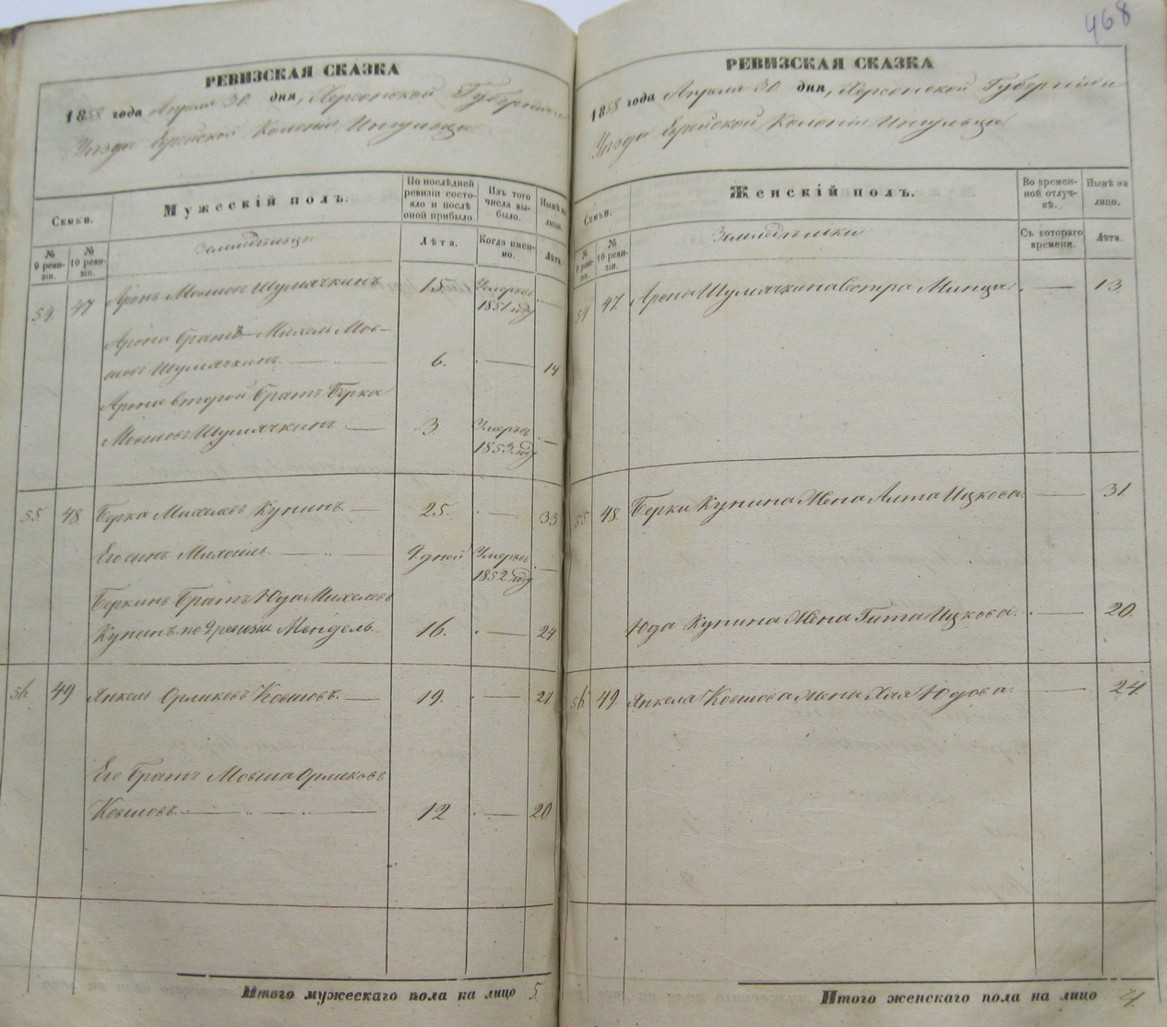 468
РЕВИЗСКАЯ СКАЗКА
1858 года Апреля 30 дня, Херсонской Губернии
Уезда Еврейской Колоніи Ингульца
Семьи.
Мужескій полъ.
По послѣдней ревизіи состояло и послѣ оной прибыло.
Изъ того числа выбыло.
Нынѣ на лицо.
№ 9 ревизіи.
№ 10 ревизіи.
Лѣта.
Когда именно.
Лѣта
54 47 Аронъ Мовшовъ Шумячкинъ 15 Умеръ 1851 году —
Арона братъ Михель Мов-
шовъ Шумячкинъ — 6. — 14
Арона второй братъ Берка
Мовшовъ Шумячкинъ — 3 Умеръ 1853 году —
55 48 Берка Михелевъ Купинъ — 25. — 33
Его сынъ — 9 дней Умеръ 1852 году —
Беркинъ братъ Юда Михелевъ
Купинъ по 9 ревизіи Мендель 16. — 24
56 49 Янкель Орликовъ Ковшовъ — 19. — 27
Его братъ Мовша Орликовъ
Ковшовъ — 12 — 20
Итого мужескаго пола на лицо 5
РЕВИЗСКАЯ СКАЗКА
1858 года Апреля 30 дня, Херсонской Губерніи
Уезда Еврейской Колоніи Ингульца
Семьи.
Женскій полъ.
Во временной отлучкѣ.
Нынѣ на лицо.
№ 9 ревизіи.
№ 10 ревизіи.
Съ котораго времени.
Лѣта.
54 47. Арона Шумячкина сестра — 13.
55 48. Берки Купина жена Ицкова — 31
Юда Купина жена Гита Ицкова. — 20.
56 49. Янкеля Ковшова жена Хая Юдова. — 24
Итого женскаго пола на лицо 4